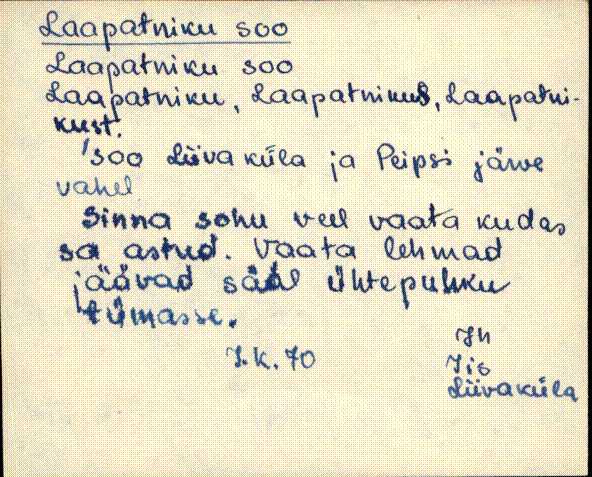 Laapatniku soo
Laapatniku soo
Laapatniku, Laapatnikus, Laapatni-
kust.
'soo Liivaküla ja Peipsi järve
vahel'
Sinna sohu veel vaata kudas
sa astud. Vaata lehmad
jäävad sääl ühtepuhku
tümasse.
J.K. 70
Jh
Iis
Liivaküla